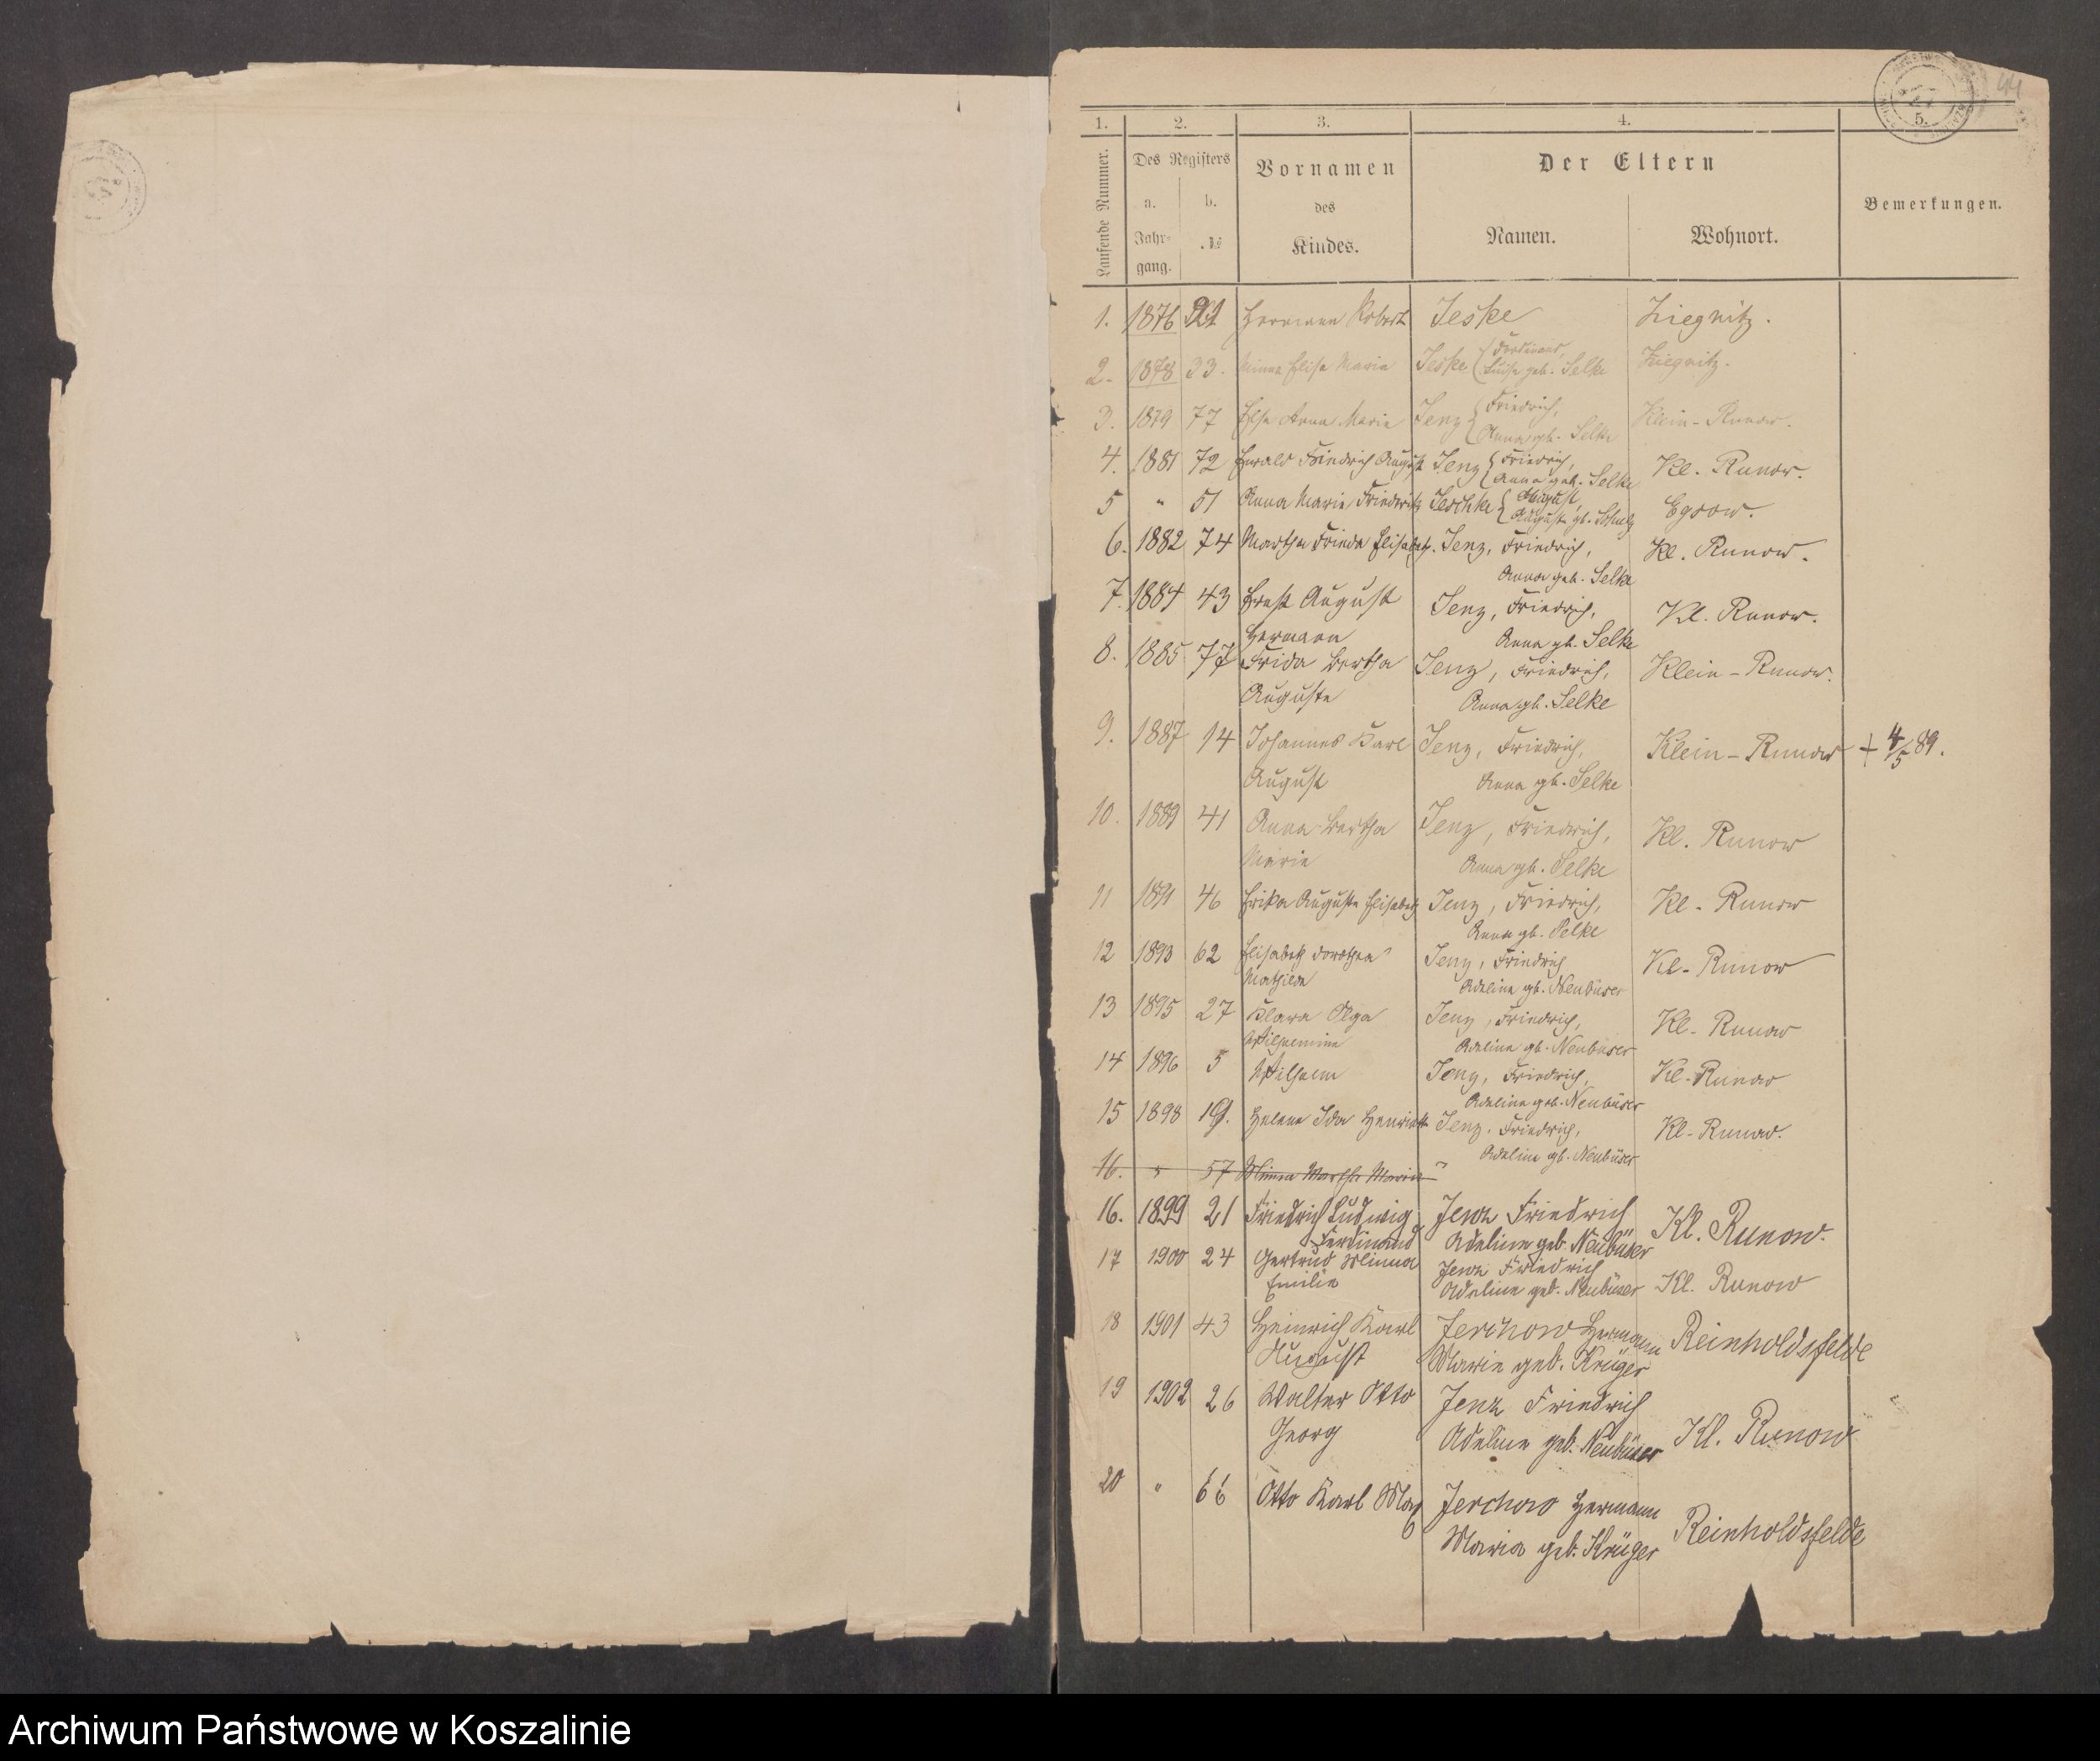 1. 2. 3. 4. 5.
Laufende Nummer. Des Registers Vornamen Der Eltern Bemerkungen.
a. b. des
Jahrgang. № Kindes. Namen. Wohnort.
1. 1876 21 Hermann Robert Jeske Ziegnitz.
2. 1878 33. Minna Elise Marie Jeske Ferdinand, Ziegnitz.
Luise geb. Selke
3. 1879 77 Else Anna Marie Jenz Friedrich, Klein-Runow.
Anna gb. Selke
4. 1881 72 Ewald Friedrich August Jenz Friedrich, Kl. Runow.
Anna geb. Selke
5 " 51 Anna Marie Friederike Jeschke August, Egsow.
Auguste gb. Schulz
6. 1882 74 Martha Frieda Elisabeth. Jenz, Friedrich, Kl. Runow.
Anna geb. Selke
7. 1884 43 Ernst August Jenz, Friedrich, Kl. Runow.
Hermann Anna gb. Selke
8. 1885 77 Frida Bertha Jenz, Friedrich, Klein-Runow.
Auguste Anna gb. Selke
9. 1887 14 Johannes Karl Jenz, Friedrich, Klein-Runow + 4/5 89.
August Anna gb. Selke
10. 1889 41 Anna Bertha Jenz, Friedrich, Kl. Runow
Marie Anna gb. Selke
11 1891 46 Erika Auguste Elisabeth Jenz, Friedrich, Kl. Runow
Anna gb. Selke
12 1893 62 Elisabeth Dorothea Jenz, Friedrich Kl-Runow
Mathilde Adeline gb. Neubüser
13 1895 27 Klara Olga Jenz, Friedrich, Kl-Runow
Wilhelmine Adeline gb. Neubüser
14 1896 5 Wilhelm Jenz, Friedrich, Kl-Runow
Adeline geb. Neubüser
15 1898 19. Helene Ida Henriette Jenz, Friedrich, Kl-Runow.
Adeline gb. Neubüser
16. " 57 Minna Martha Marie "
16. 1899 21 Friedrich Ludwig Jenz Friedrich Kl. Runow.
Ferdinand Adeline geb. Neubüser
17 1900 24 Gertrud Minna Jenz Friedrich Kl. Runow
Emilie Adeline geb. Neubüser
18 1901 43 Heinrich Karl Jerchow Hermann Reinholdsfelde
August Marie geb. Krüger
19 1902 26 Walter Otto Jenz Friedrich Kl. Runow
Georg Adeline geb. Neubüser
20 " 66 Otto Karl Max Jerchow Hermann Reinholdsfelde
Maria geb. Krüger
Archiwum Państwowe w Koszalinie